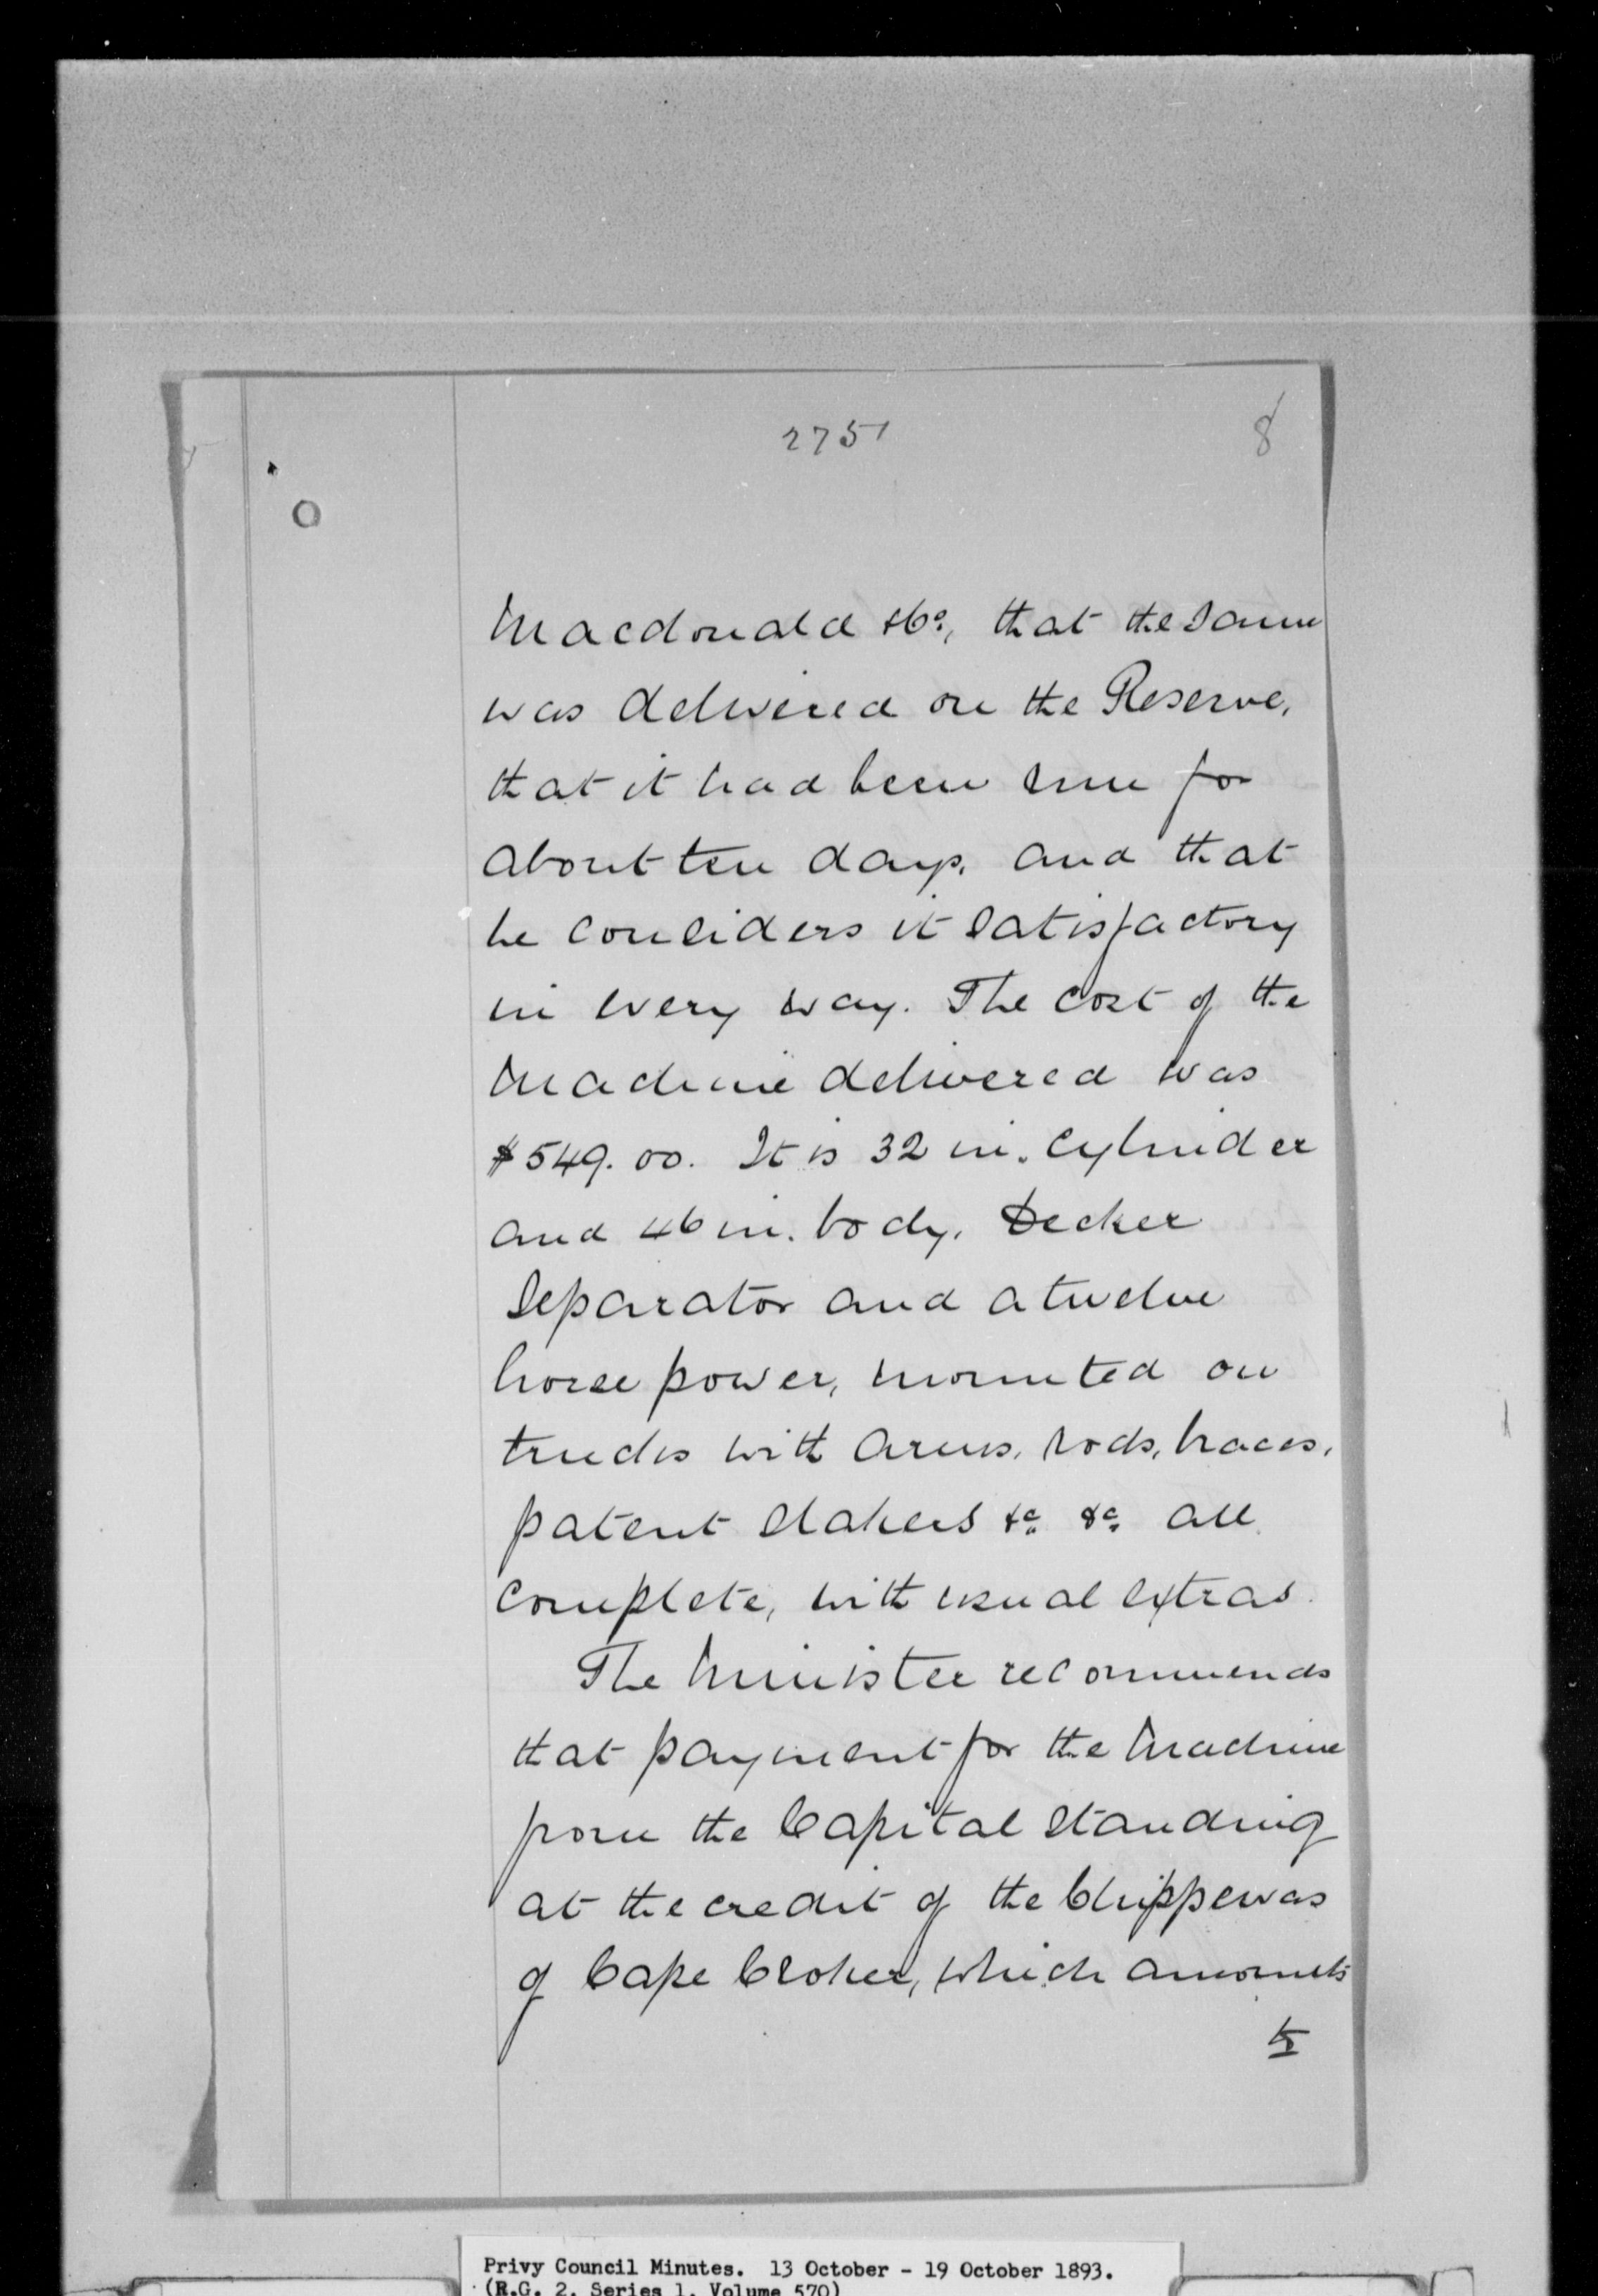 2751
8
Macdonald & Co., that the same
was delivered on the Reserve,
that it had been run for
about ten days, and that
he considers it satisfactory
in every way. The cost of the
Machine delivered was
$549.00. It is 32 in. Cylinder
and 46 in. body, Decker
Separator and a twelve
horse power, mounted on
trucks with arms, rods, braces,
patent stakers &c. &c. all
complete, with usual extras.
The Minister recommends
that payment for the Machine
from the Capital standing
at the credit of the Chippewas
of Cape Croker, which amounts
to
Privy Council Minutes. 13 October - 19 October 1893.
(R.G. 2, Series 1, Volume 570)